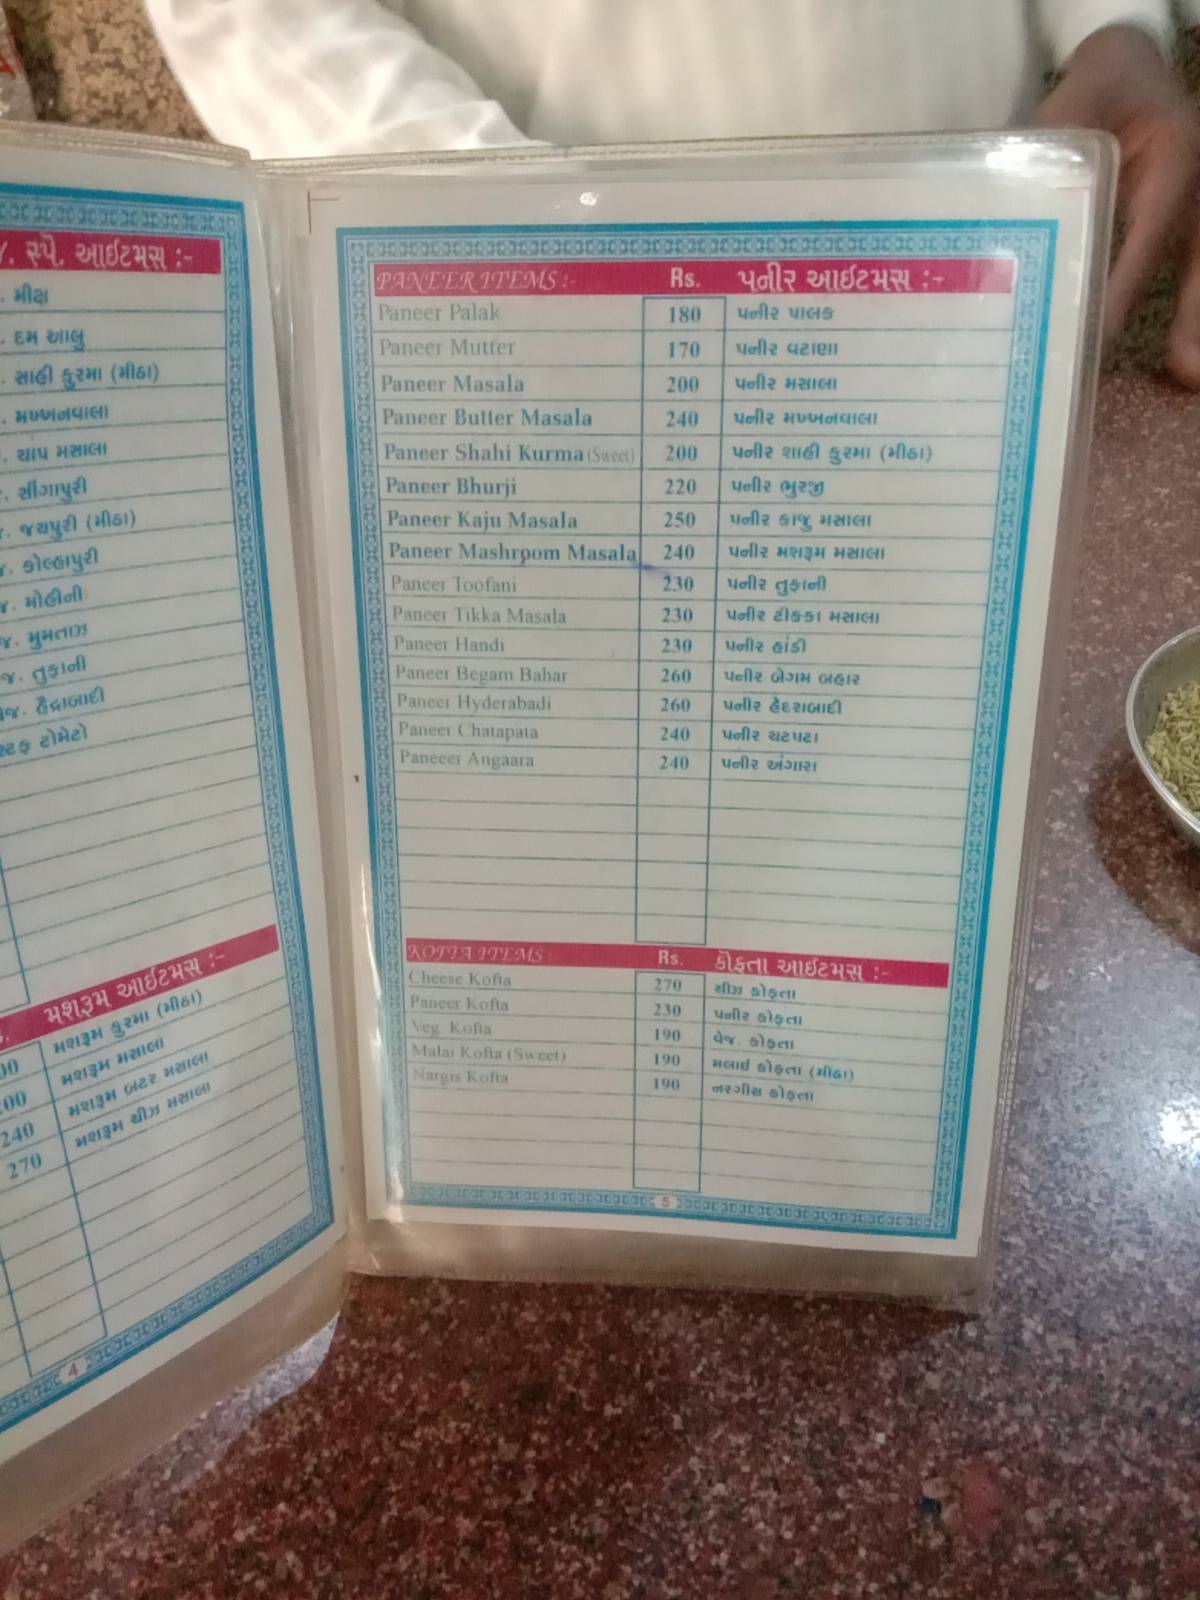 . સ્પે. આઈટમસ :-
. મીક્ષ
. દમ આલુ
. સાહી કુરમા (મીઠા)
. મખ્ખનવાલા
. ચાપ મસાલા
. સીંગાપુરી
. જયપુરી (મીઠા)
. કોલ્હાપુરી
. મોહીની
. મુમતાઝ
જ. તુફાની
જ. હૈદ્રાબાદી
ટોમેટો
મશરૂમ આઈટમસ :-
મશરૂમ કુરમા (મીઠા)
મશરૂમ મસાલા
240 મશરૂમ બટર મસાલા
270 મશરૂમ ચીઝ મસાલા
4
PANEER ITEMS :- Rs. પનીર આઈટમસ :-
Paneer Palak 180 પનીર પાલક
Paneer Mutter 170 પનીર વટાણા
Paneer Masala 200 પનીર મસાલા
Paneer Butter Masala 240 પનીર મખ્ખનવાલા
Paneer Shahi Kurma (Sweet) 200 પનીર શાહી કુરમા (મીઠા)
Paneer Bhurji 220 પનીર ભુરજી
Paneer Kaju Masala 250 પનીર કાજુ મસાલા
Paneer Mashrpom Masala 240 પનીર મશરૂમ મસાલા
Paneer Toofani 230 પનીર તુફાની
Paneer Tikka Masala 230 પનીર ટીકકા મસાલા
Paneer Handi 230 પનીર હાંડી
Paneer Begam Bahar 260 પનીર બેગમ બહાર
Paneer Hyderabadi 260 પનીર હૈદરાબાદી
Paneer Chatapata 240 પનીર ચટપટા
Paneeer Angaara 240 પનીર અંગારા
KOFTA ITEMS :- Rs. કોફતા આઈટમસ :-
Cheese Kofta 270 ચીઝ કોફતા
Paneer Kofta 230 પનીર કોફતા
Veg. Kofta 190 વેજ. કોફતા
Malai Kofta (Sweet) 190 મલાઈ કોફતા (મીઠા)
Nargis Kofta 190 નરગીસ કોફતા
5